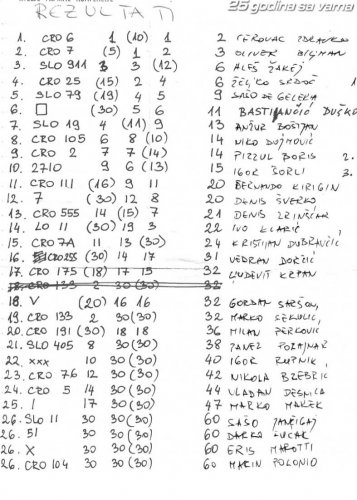 25 godina sa vama
REZULTATI
1. CRO 6 1 (10) 1 2 PEROVAC ZDRAVKO
2. CRO 7 (5) 1 2 3 OLIVER BIČMAN
3. SLO 911 3 3 (12) 6 ALEŠ ŽAKEJ
4. CRO 25 (15) 2 4 6 ŽELJKO SRDOČ
5. SLO 79 (19) 4 5 9 SAŠO DE GELERA
6. □ (30) 5 6 11 BASTIJANČIĆ DUŠKO
7. SLO 19 4 (11) 9 13 ANŽUR BOŠTJAN
8. CRO 105 6 8 (10) 14 NIKO DUJMOVIĆ
9. CRO 2 7 7 (14) 14 PIZZUL BORIS 2.
10. 2710 9 6 (13) 15 IGOR BORLI 3.
11. CRO 111 (16) 9 11 20 BERNARDO KIRIGIN
12. 7 (30) 12 8 20 DENIS ŠVERKO
13. CRO 555 14 (15) 7 21 DENIS ZRINŠČAK
14. LO 11 (30) 19 3 22 IVO KLARIĆ
15. CRO 7A 11 13 (30) 24 KRISTIJAN DUBRAVČIĆ
16. CRO 255 (30) 14 17 31 VEDRAN DORČIĆ
17. CRO 175 (18) 17 15 32 LJUDEVIT KRPAN
18. CRO 133 2 30 (30) 32
18. V (20) 16 16 32 GORDAN SARŠON
19. CRO 133 2 30 (30) 32 MARKO SEKULIĆ
20. CRO 191 (30) 18 18 36 MILAN PERKOVIĆ
21. SLO 405 8 30 (30) 38 JANEZ POZAJNAR
22. xxx 10 30 (30) 40 IGOR RUPNIK
23. CRO 76 12 30 (30) 42 NIKOLA BZEBRIĆ
24. CRO 5 14 30 (30) 44 VLADAN DESNICA
25. / 17 30 (30) 47 MARKO MAREK
26. SLO 11 30 30 (30) 60 SAŠO JANČIGAJ
26. 51 30 30 (30) 60 DARKO LUČAR
26. X 30 30 (30) 60 ERIS MAROTTI
26. CRO 104 30 30 (30) 60 MARIN POLONIO